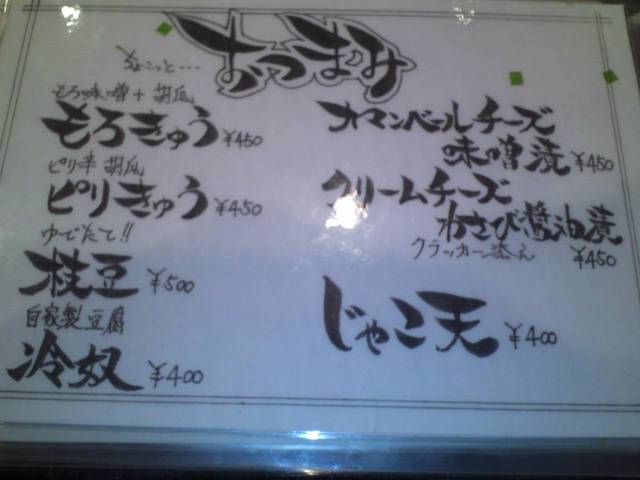 ちょこっと…
おつまみ
もろ味噌+胡瓜
もろきゅう ¥450
ピリ辛胡瓜
ピリきゅう ¥450
ゆでたて!!
枝豆 ¥500
自家製豆腐
冷奴 ¥400
カマンベールチーズ
味噌漬 ¥450
クリームチーズ
わさび醤油漬
クラッカー添え ¥450
じゃこ天 ¥400